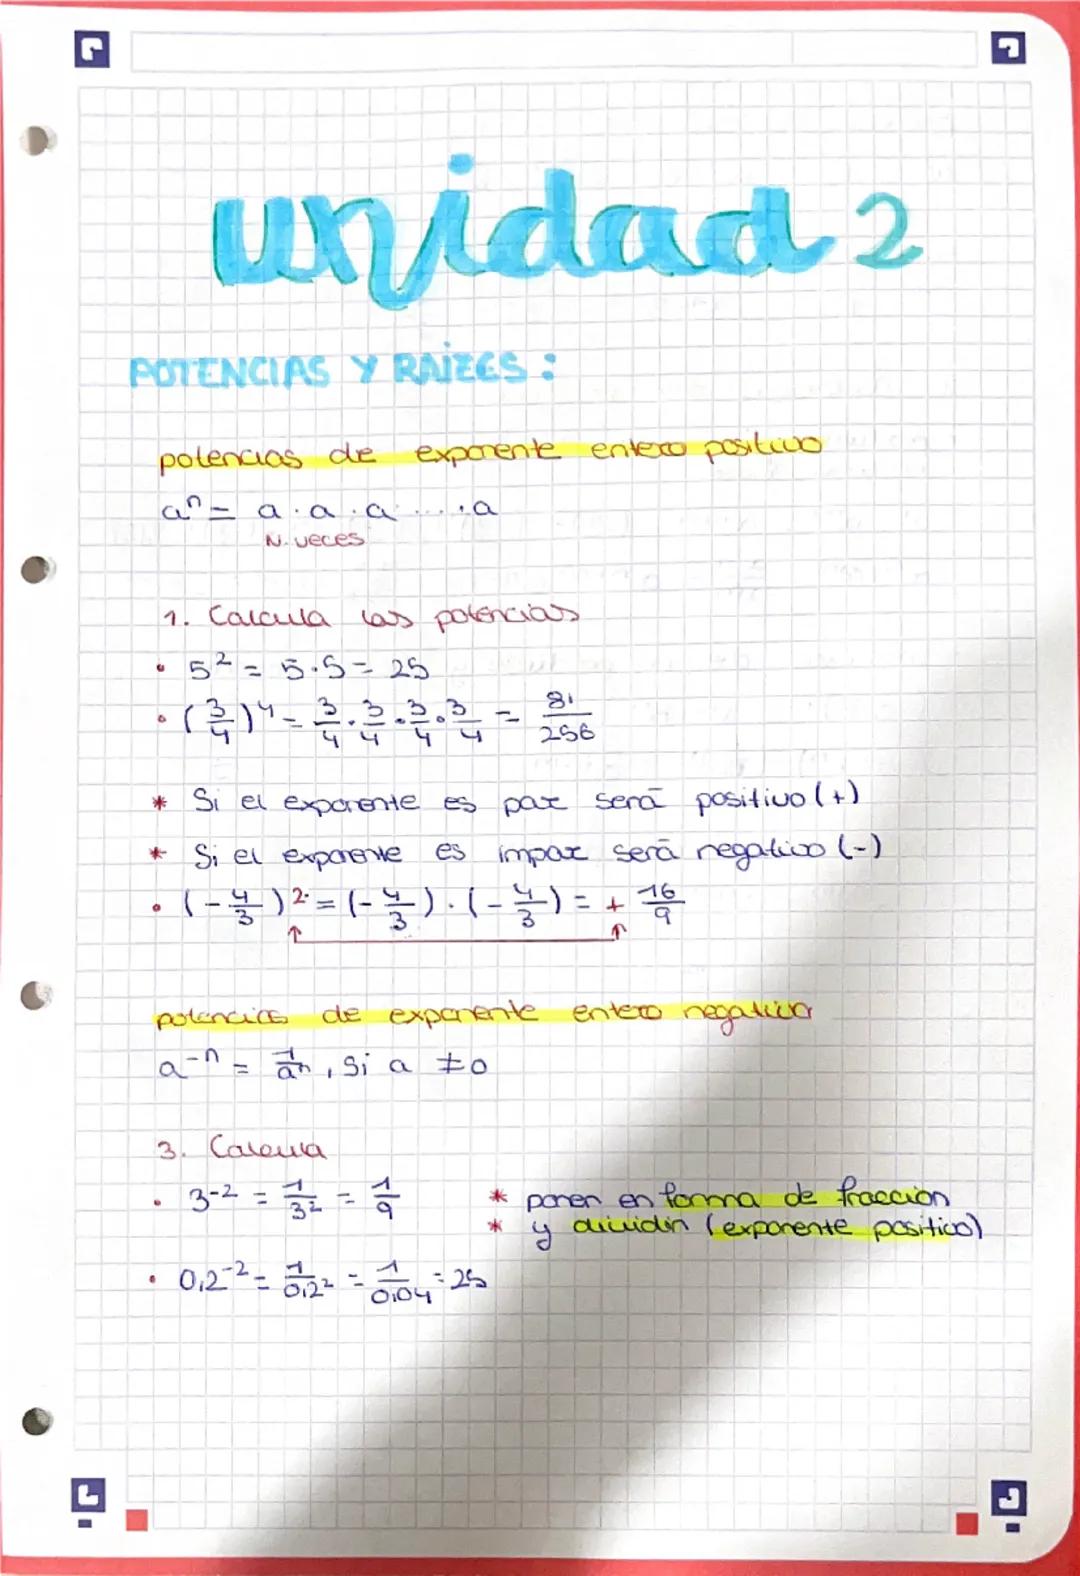 unidad 2
POTENCIAS Y RAÍZES :
potencias de exponente entero positivo
aⁿ = a · a · a ..... · a
N. veces
1. Calcula las potencias
• 5² = 5·5 = 25
• (3/4)⁴ = 3/4 · 3/4 · 3/4 · 3/4 = 81/256
* Si el exponente es par será positivo (+)
* Si el exponente es impar será negativo (-)
• (-4/3)² = (-4/3) · (-4/3) = + 16/9
potencias de exponente entero negativo
a⁻ⁿ = 1/aⁿ, Si a ≠ 0
3. Calcula
• 3⁻² = 1/3² = 1/9
* poner en forma de fracción
* y dividir (exponente positivo)
• 0,2⁻² = 1/0,2² = 1/0,04 = 25